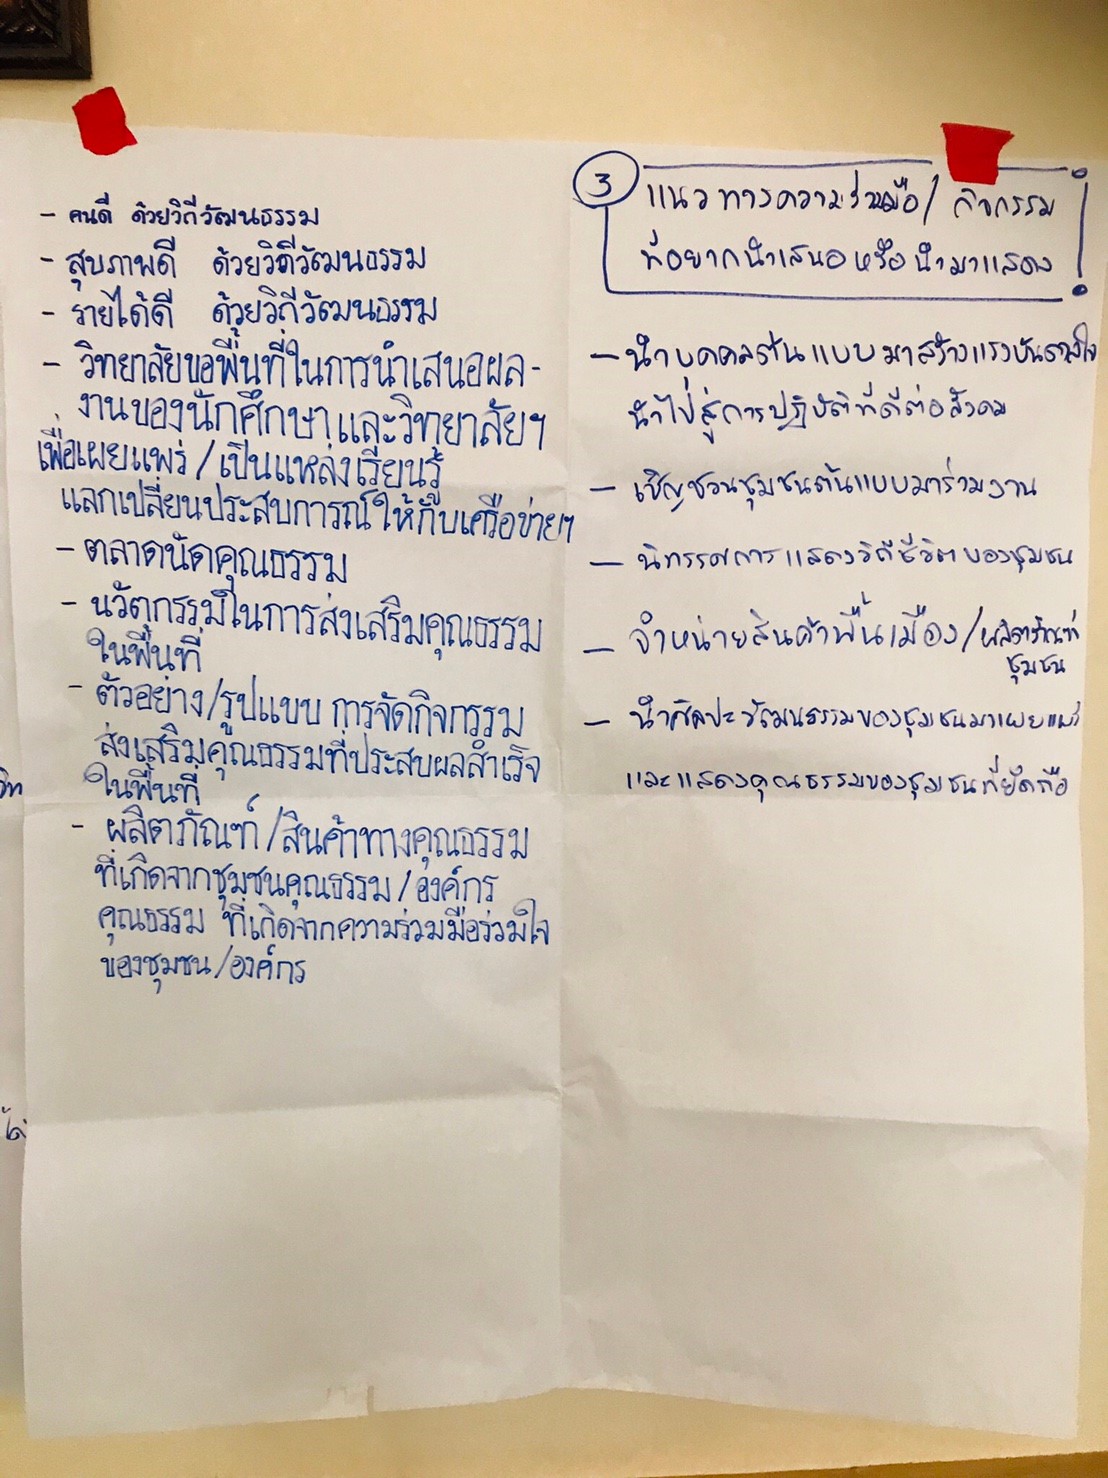 - คนดี ด้วยวิถีวัฒนธรรม
- สุขภาพดี ด้วยวิถีวัฒนธรรม
- รายได้ดี ด้วยวิถีวัฒนธรรม
- วิทยาลัยขอพื้นที่ในการนำเสนอผล-
งานของนักศึกษา และวิทยาลัยฯ
เพื่อเผยแพร่ / เป็นแหล่งเรียนรู้
แลกเปลี่ยนประสบการณ์ให้กับเครือข่ายฯ
- ตลาดนัดคุณธรรม
- นวัตกรรมในการส่งเสริมคุณธรรม
ในพื้นที่
- ตัวอย่าง/รูปแบบ การจัดกิจกรรม
ส่งเสริมคุณธรรมที่ประสบผลสำเร็จ
ในพื้นที่
- ผลิตภัณฑ์ /สินค้าทางคุณธรรม
ที่เกิดจากชุมชนคุณธรรม /องค์กร
คุณธรรม ที่เกิดจากความร่วมมือร่วมใจ
ของชุมชน /องค์กร
3 แนวทางความร่วมมือ / กิจกรรม
ที่อยากนำเสนอ หรือ นำมาแสดง
- นำบุคคลต้นแบบมาสร้างแรงบันดาลใจ
นำไปสู่การปฏิบัติที่ดีต่อสังคม
- เชิญชวนชุมชนต้นแบบมาร่วมงาน
- นิทรรศการแสดงวิถีชีวิตของชุมชน
- จำหน่ายสินค้าพื้นเมือง /ผลิตภัณฑ์
ชุมชน
- นำศิลปะวัฒนธรรมของชุมชนมาเผยแพร่
และแสดงคุณธรรมของชุมชนที่ยึดถือ